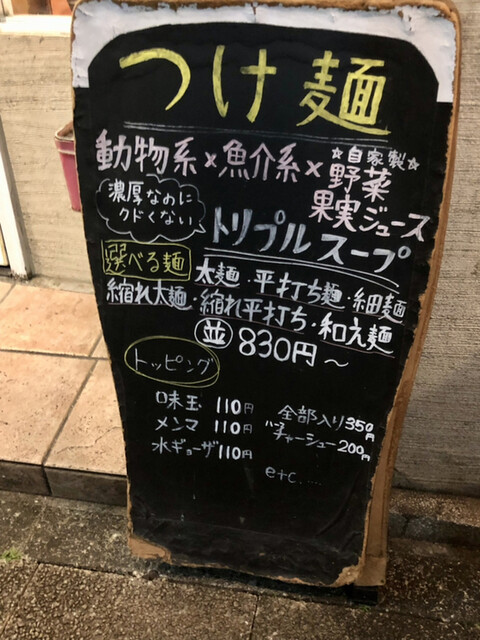 つけ麺
動物系×魚介系×☆自家製☆
野菜
果実ジュース
濃厚なのに
クドくない
トリプルスープ
選べる麺
太麺・平打ち麺・細麺
縮れ太麺・縮れ平打ち・和え麺
並 830円〜
トッピング
味玉 110円
メンマ 110円
水ギョーザ110円
全部入り350円
チャーシュー200円
etc.....